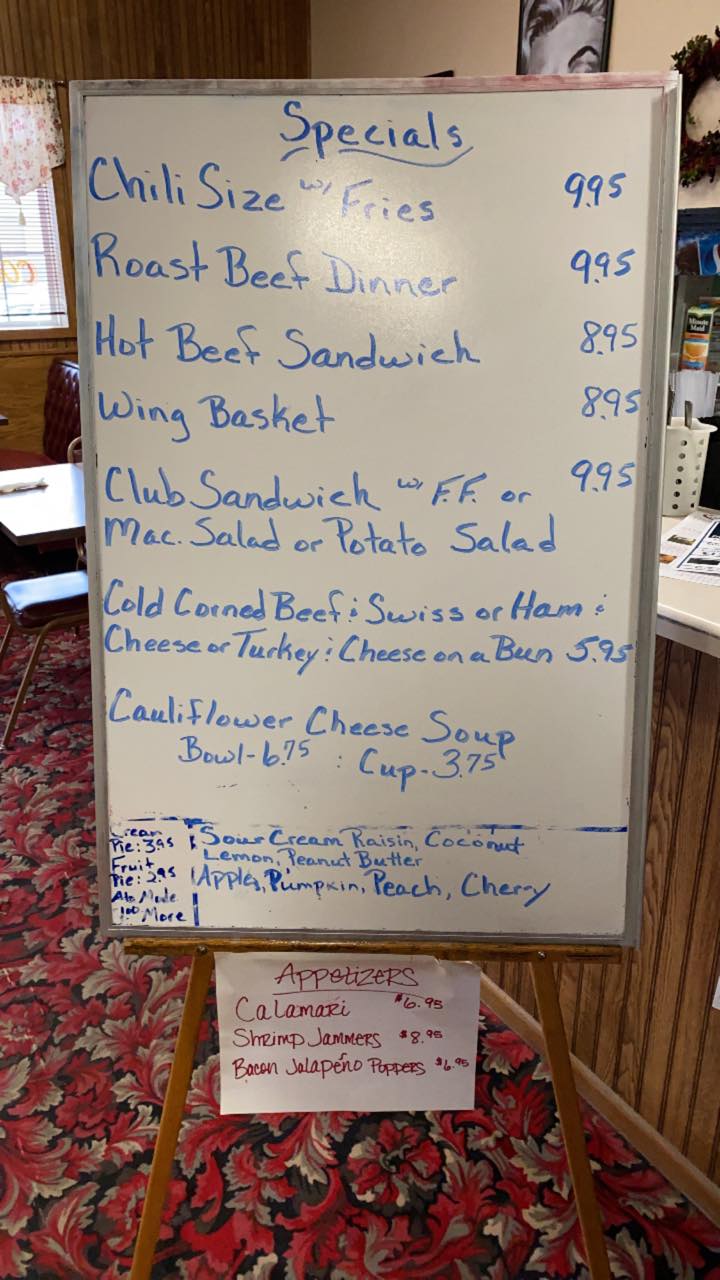 Specials
Chili Size w/ Fries 9.95
Roast Beef Dinner 9.95
Hot Beef Sandwich 8.95
Wing Basket 8.95
Club Sandwich w/ F.F. or 9.95
Mac. Salad or Potato Salad
Cold Corned Beef & Swiss or Ham &
Cheese or Turkey & Cheese on a Bun 5.95
Cauliflower Cheese Soup
Bowl-6.75 : Cup-3.75
Cream
Pie: 3.95
Fruit
Pie: 2.95
Ala Mode
1.00 More
Sour Cream Raisin, Coconut
Lemon, Peanut Butter
Apple, Pumpkin, Peach, Cherry
Appetizers
Calamari $6.95
Shrimp Jammers $8.95
Bacon Jalapeño Poppers $6.95
Minute
Maid